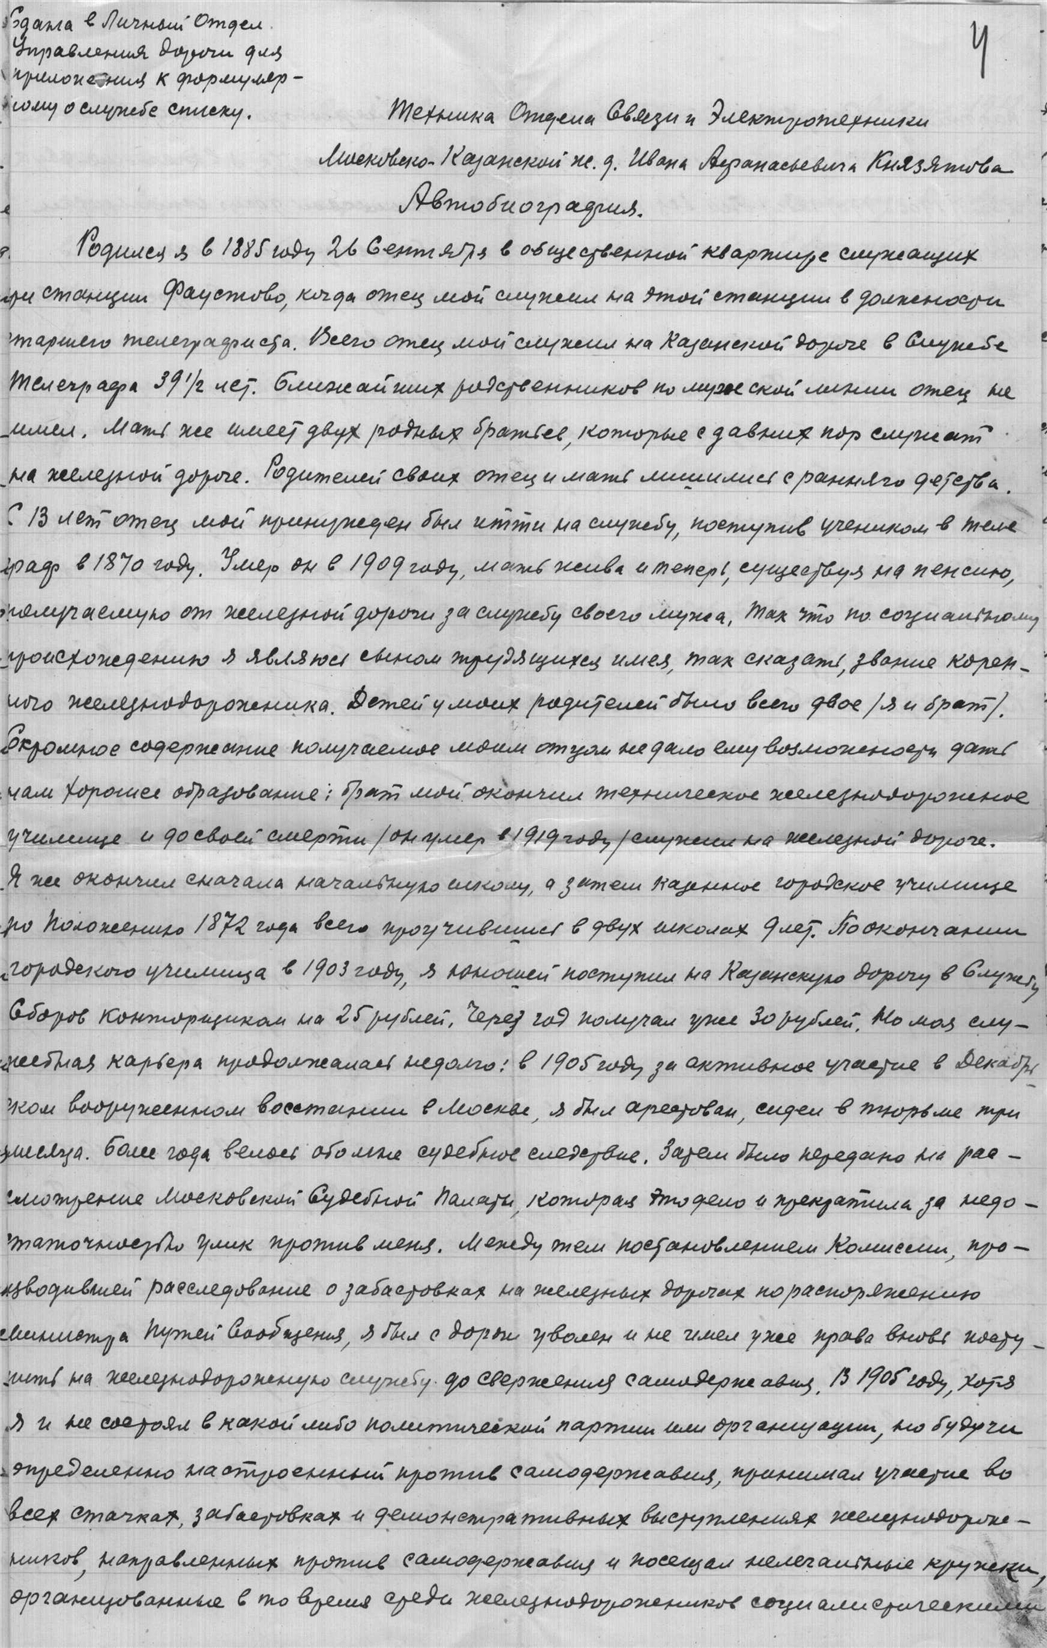 Сдана в Личный Отдел
Управления дороги для
приложения к формуляр-
ному о службе списку.
4
Техника Отдела Связи и Электротехники
Московско-Казанской ж. д. Ивана Афанасьевича Князятова
Автобиография.
Родился я в 1885 году 26 Сентября в общественной квартире служащих
при станции Фаустово, когда отец мой служил на этой станции в должности
старшего телеграфиста. Всего отец мой служил на Казанской дороге в Службе
Телеграфа 39 1/2 лет. Ближайших родственников по мужской линии отец не
имел. Мать же имеет двух родных братьев, которые с давних пор служат
на железной дороге. Родителей своих отец и мать лишились с раннего детства.
С 13 лет отец мой принужден был итти на службу, поступив учеником в теле
граф в 1870 году. Умер он в 1909 году, мать жива и теперь, существуя на пенсию,
получаемую от железной дороги за службу своего мужа, так что по социальному
происхождению я являюсь сыном трудящихся имея, так сказать, звание корен-
ного железнодорожника. Детей у моих родителей было всего двое /я и брат/.
Скромное содержание получаемое моим отцом не дало ему возможности дать
нам хорошее образование: брат мой окончил техническое железнодорожное
училище и до своей смерти /он умер в 1919 году/ служил на железной дороге.
Я же окончил сначала начальную школу, а затем казенное городское училище
по Положению 1872 года всего проучившись в двух школах 9 лет. По окончании
городского училища в 1903 году, я юношей поступил на Казанскую дорогу в Службу
Сборов конторщиком на 25 рублей. Через год получал уже 30 рублей. Но моя слу-
жебная карьера продолжалась недолго: в 1905 году за активное участие в Декабрь-
ском вооруженном восстании в Москве, я был арестован, сидел в тюрьме три
месяца. Более года велось обо мне судебное следствие. Затем было передано на рас-
смотрение Московской Судебной Палаты, которая это дело и прекратила за недо-
статочностью улик против меня. Между тем постановлением Комиссии, про-
изводившей расследование о забастовках на железных дорогах по распоряжению
Министра Путей Сообщения, я был с дороги уволен и не имел уже права вновь посту-
пить на железнодорожную службу до свержения самодержавия. В 1905 году, хотя
я и не состоял в какой либо политической партии или организации, но будучи
определенно настроенный против самодержавия, принимал участие во
всех стачках, забастовках и демонстративных выступлениях железнодорож-
ников, направленных против самодержавия и посещал нелегальные кружки,
организованные в то время среди железнодорожников социалистическими